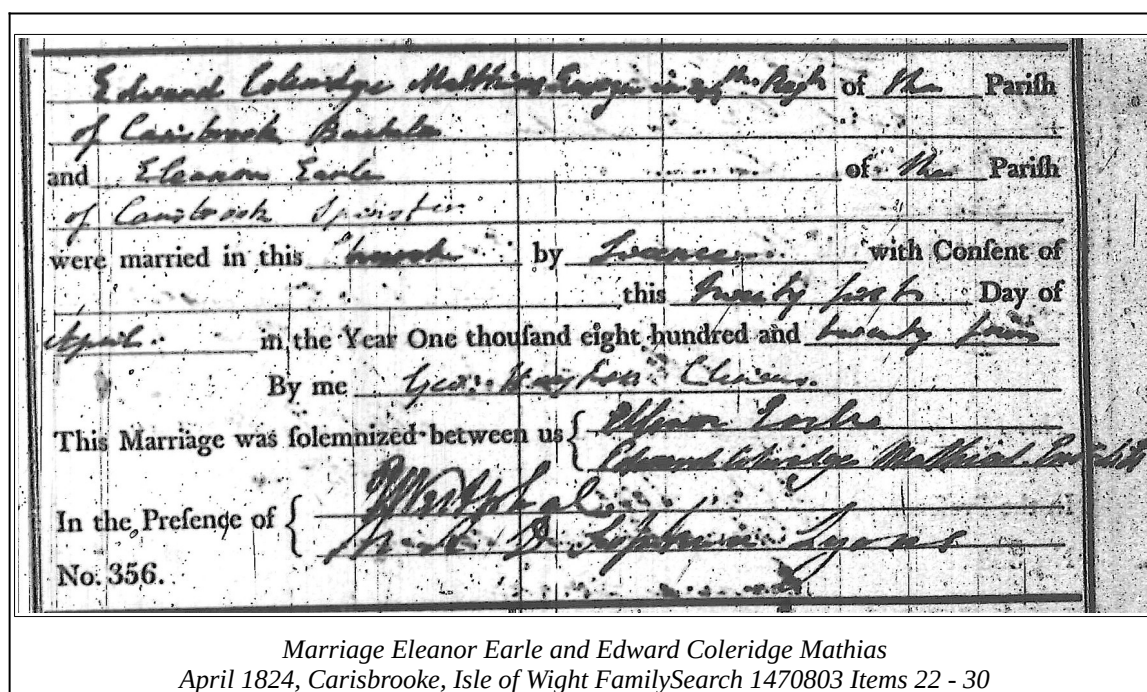 Edward Coleridge Matthias Ensign in 44th Regt of the Pariſh
of Carisbrook Bachelor
and Eleanor Earle of the Pariſh
of Carisbrook Spinster
were married in this Church by Licence with Conſent of
this twenty Day of
April in the Year One thouſand eight hundred and twenty four
By me Geo:
This Marriage was ſolemnized between us { Elleanor Earle
Edward Coleridge Mathias
In the Preſence of { Westphal
Lyons
No. 356.
Marriage Eleanor Earle and Edward Coleridge Mathias
April 1824, Carisbrooke, Isle of Wight FamilySearch 1470803 Items 22 - 30